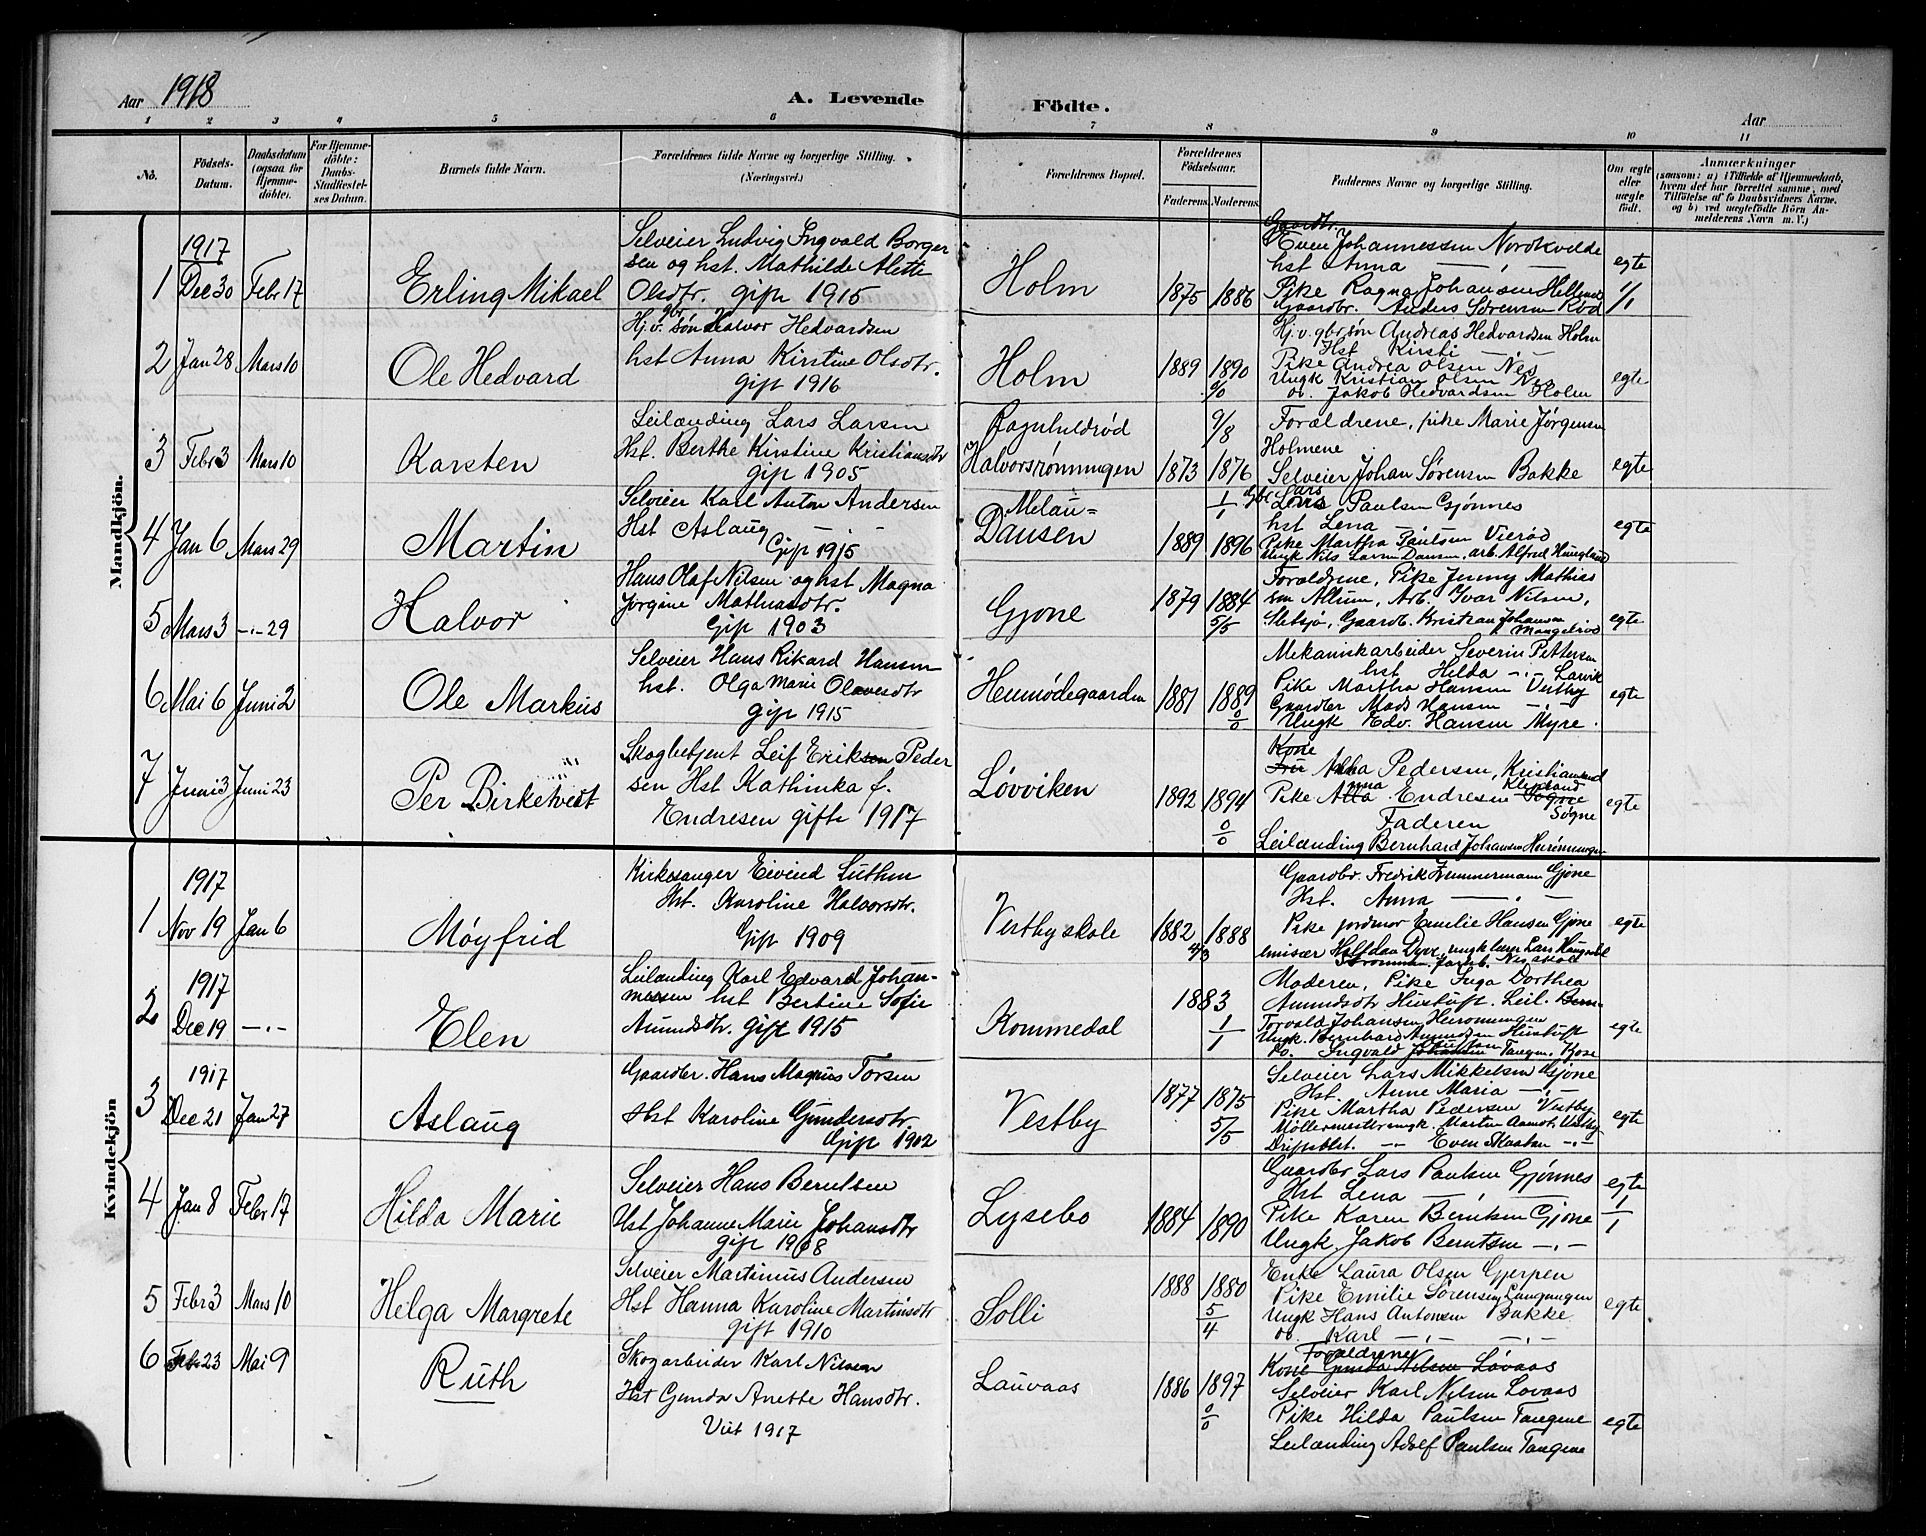 Aar 1918
A. Levende Födte.
Aar
1 2 3 4 5 6 7 8 9 10 11
No.
Födsels-Datum.
Daabsdatum (ogsaa for Hjemmedöbte).
For Hjemmedöbte: Daabs-Stadfæstelses Datum.
Barnets fulde Navn.
Forældrenes fulde Navne og borgerlige Stilling.
(Næringsvei.)
Forældrenes Bopæl.
Forældrenes Födselsaar.
Faderens. Moderens.
Faddernes Navne og borgerlige Stilling.
Om ægte eller uægte födt.
Anmærkninger
(saasom: a) i Tilfælde af Hjemmedaab, hvem det har forrettet samme, med Tilföielse af to Daabsvidners Navne, og b) ved uægtefödte Börn Anmelderens Navn m. V.)
Mandkjön.
1 1917 Dec 30 Febr 17
Erling Mikael
Selveier Ludvig Ingvald Borger
sen og hst. Mathilde Alette
Olsdtr. gift 1915
Holm
1875 1886
Gaardbr.
Even Johannessen Nordkvelde
hst Anna —,—
Pike Ragna Johansen
Gaardbr. Anders Sörensen
egte 1/1
2 Jan 28 Mars 10
Ole Hedvard
Hj.v. gbr søn Halvor Hedvardsen
hst Anna Kirstine Olsdtr.
gift 1916
Holm
1889 1890
0/0
Hj.v. gbr søn Andreas Hedvardsen Holm
Hst Kirsti —,—
Pike Andrea Olsen Nes
Ungk Kristian Olsen Nes
do. Jakob Hedvardsen Holm
egte
3 Febr 3 Mars 10
Karsten
Leilænding Lars Larsen
Hst. Berthe Kirstine Kristiansdtr
gift 1905
Ragnhildrød
Halvorsrønningen
9/8
1873 1876
Forældrene, pike Marie Jørgensen
Holmene
Selveier Johan Sørensen Bakke
egte
4 Jan 6 Mars 29
Martin
Selveier Karl Anton Andersen
Hst Aslaug —,—
Gift 1915
Melau=
Dausen
1/1
1889 1896
Gbr Lars Paulsen Gjønnes
hst Lena —
Pike Martha Paulsen Vierød
Ungk Nils Larsen Dausen, arb. Alfred Haugland
egte
5 Mars 3 —.— 29
Halvor
Hans Olaf Nilsen og hst Magna
Jørgine Mathiasdtr.
Gift 1903
Gjone
1879 1884
5/5
Forældrene, Pike Jenny Mathias
sen Allum, Arb. Ivar Nilsen,
Sletsjø, Gaardb. Kristian Johansen
egte
6 Mai 6 Juni 2
Ole Markus
Selveier Hans Rikard Hansen
hst. Olga Marie Olavesdtr
gift 1915
Hemmødegaarden
1881 1889
0/0
Mekaniskarbeider Severin Pettersen
hst Hilda —.— Larvik
Pike Martha Hansen Vestby
Gaardbr Mads Hansen —.—
Ungk Edv. Hansen Myre.
egte
7 Juni 3 Juni 23
Per Birketvedt
Skogbetjent Leif Eriksen Peder
sen Hst Kathinka f.
Endresen gifte 1917
Løvviken
1892 1894
0/0
Kone
Fru Anna Pedersen, Kristiansand
Pike Anna Endresen Søgne
Faderen
Leilænding Bernhard Johansen
egte
Kvindekjön
1 1917 Nov 19 Jan 6
Møyfrid
Kirkesanger Eivind Luthen
Hst. Karoline Halvorsdtr.
Gift 1909
Vestby skole
1882 1888
4/3
Gaardbr. Fredrik Zimmermann Gjone
Hst. Anna —.—
Pike jordmor Emilie Hansen Gjone
emisær Halfdan Dyve, ungk lærer Lars Haugdal
egte
2 1917 Dec 19 —.—
Elen
Leilænding Karl Edvard Johan-
nessen hst Bertine Sofie
Amundsdtr. gift 1915
Kommedal
1883
1/1
Moderen, Pike Inga Dorthea
Amundsdtr Hustuft. Leil.
Torvald Johansen
Ungk. Bernhard Amundsen Hustuft
do. Ingvald Johansen Tangen, Kjose
egte
3 1917 Dec 21 Jan 27
Aslaug
Gaardbr. Hans Magnus Torsen
Hst Karoline Gundersdtr.
Gift 1902
Vestby
1877 1875
5/5
Selveier Lars Mikkelsen Gjone
Hst. Anne Maria —.—
Pike Martha Pedersen Vestby
Møllermester ungk. Martin Aamot, Vestby
Even
egte
4 Jan 8 Febr 17
Hilda Marie
Selveier Hans Berntsen
Hst Johanne Marie Johansdtr
gift 1908
Lysebo
1884 1890
Gaardbr Lars Paulsen Gjønnes
Hst Lena —
Pike Karen Berntsen Gjone
Ungk. Jakob Berntsen —.—
egte 1/1
5 Febr 3 Mars 10
Helga Margrete
Selveier Martinius Andersen
Hst Hanna Karoline Martinsdtr
gift 1910
Solli
1888 1880
5/4
Enke Laura Olsen Gjerpen
Pike Emilie Sørensen Langangen
Ungk Hans Antonsen Bakke
do. Karl —.— —.—
egte
6 Febr 23 Mai 9
Ruth
Skogarbeider Karl Nilsen
Hst Gunda Anette Hansdtr.
Viet 1917
Lauvaas
1886 1897
0/0
Forældrene
Kone Gunda Nilsen Løvaas
Selveier Karl Nilsen Lovaas
Pike Hilda Paulsen Tangene
Leilænding Adolf Paulsen Tangene
egte